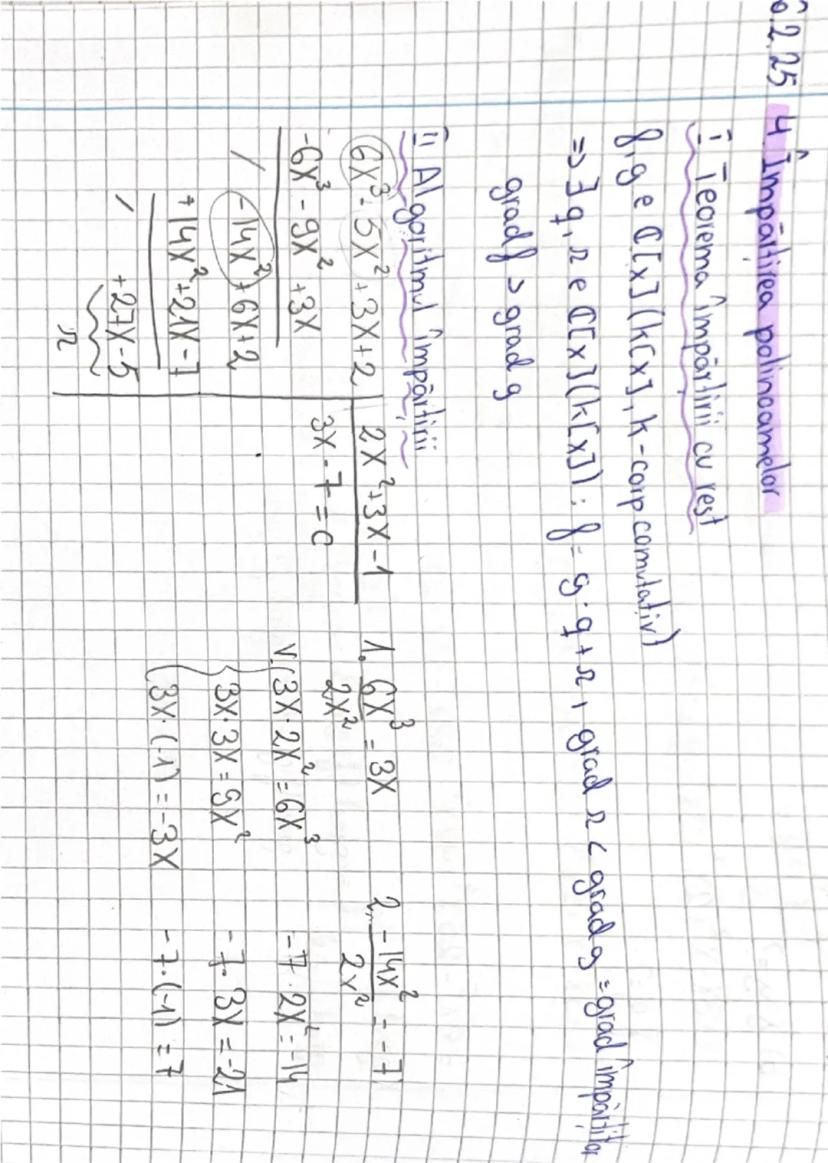 6.2.25 4. Împărțirea polinoamelor
I Teorema împărțirii cu rest
f, g ∈ ℂ[x] (k[x], k-corp comutativ)
=> ∃ q, r ∈ ℂ[x] (k[x]); f = g·q + r, grad r < grad g = grad împărțitor
grad f > grad g
II Algoritmul împărțirii
6X³-5X²+3X+2 | 2X²+3X-1
-6X³-9X²+3X 3X-7 = C
/ -14X²+6X+2
+14X²+21X-7
/ +27X-5
r
1. 6X³/2X² = 3X
3X·2X²=6X³
3X·3X=9X²
3X·(-1)=-3X
2. -14X²/2X² = -7
-7·2X²=-14
-7·3X=-21
-7·(-1)=7